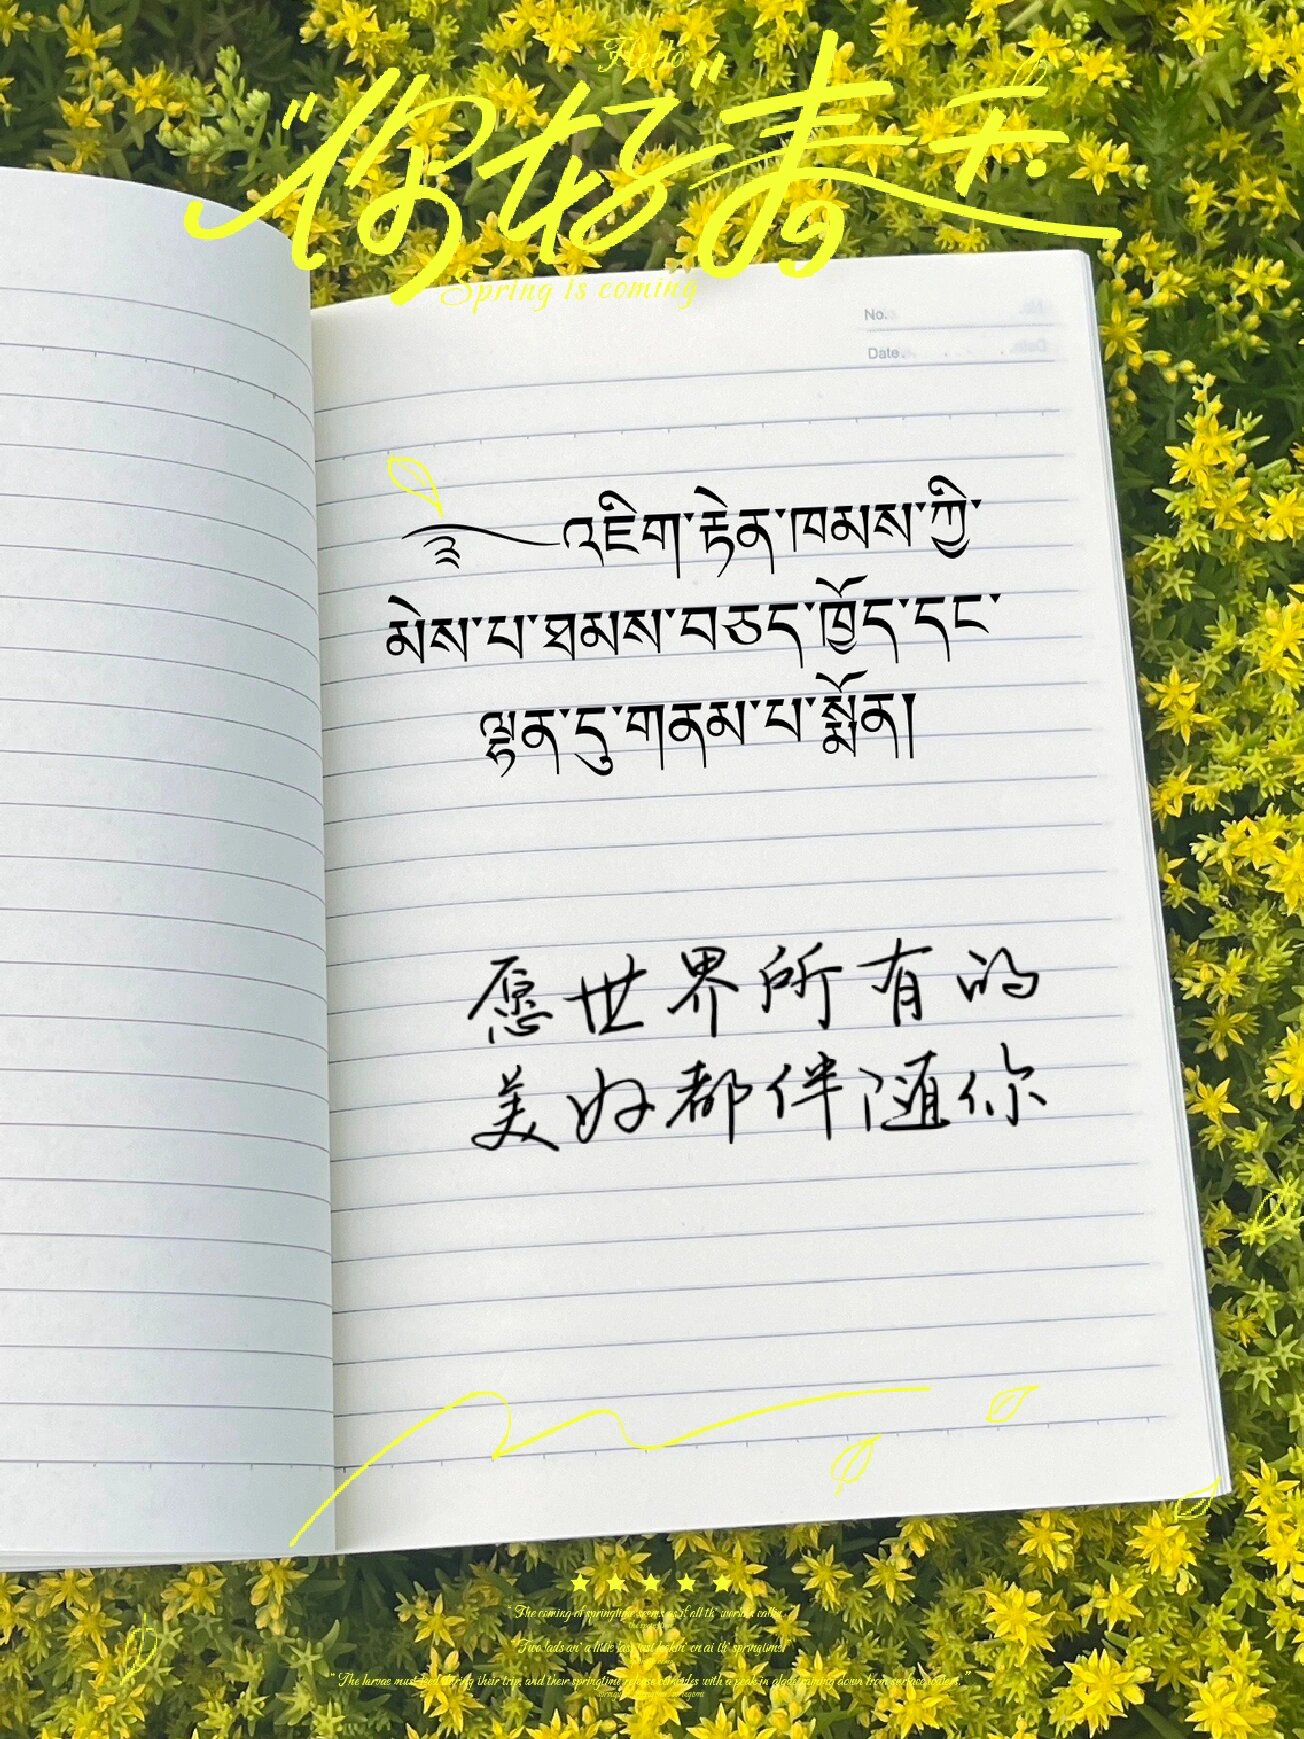 Hello
“你好”春天
Spring is coming
No.
Date.
༄འཇིག་རྟེན་ཁམས་ཀྱི་
མེས་པ་ཐམས་བཅད་ཁྱོད་དང་
ལྷན་དུ་གནམ་པ་སྨོན།
愿世界所有的
美好都伴随你
"The coming of springtime seems as if all th' world's callin'
"Two lads an' a little lass just lookin' on at th' springtime.
"The larvae must feed during their trip, and their springtime release coincides with a peak in algae raining down from surface waters."